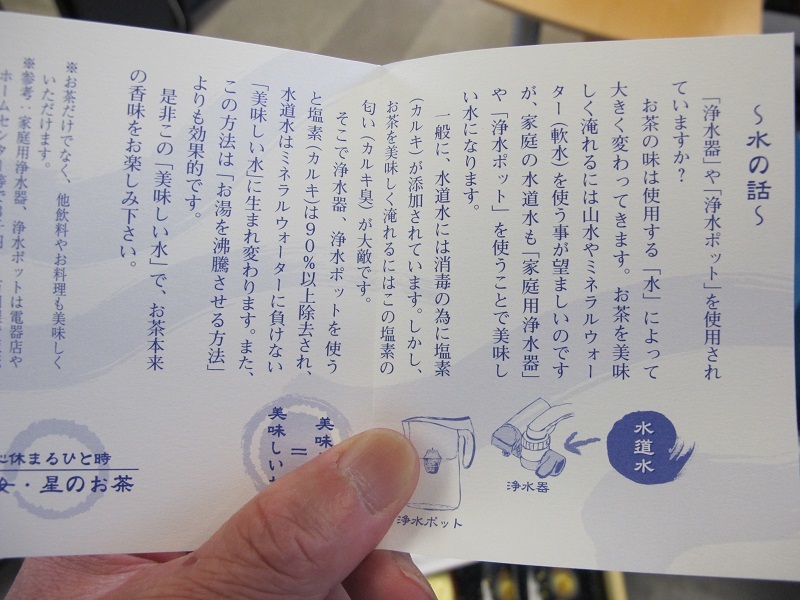 ～水の話～
「浄水器」や「浄水ポット」を使用され
ていますか？
お茶の味は使用する「水」によって
大きく変わってきます。お茶を美味
しく淹れるには山水やミネラルウォー
ター（軟水）を使う事が望ましいのです
が、家庭の水道水も「家庭用浄水器」
や「浄水ポット」を使うことで美味し
い水になります。
一般に、水道水には消毒の為に塩素
（カルキ）が添加されています。しかし、
お茶を美味しく淹れるにはこの塩素の
匂い（カルキ臭）が大敵です。
そこで浄水器、浄水ポットを使う
と塩素（カルキ）は９０％以上除去され、
水道水はミネラルウォーターに負けない
「美味しい水」に生まれ変わります。また、
この方法は「お湯を沸騰させる方法」
よりも効果的です。
是非この「美味しい水」で、お茶本来
の香味をお楽しみ下さい。
※お茶だけでなく、他飲料やお料理も美味しく
いただけます。
※参考：家庭用浄水器、浄水ポットは電器店や
ホームセンター等
水道水
浄水器
浄水ポット
美味
＝
美味しい
休まるひと時
・星のお茶